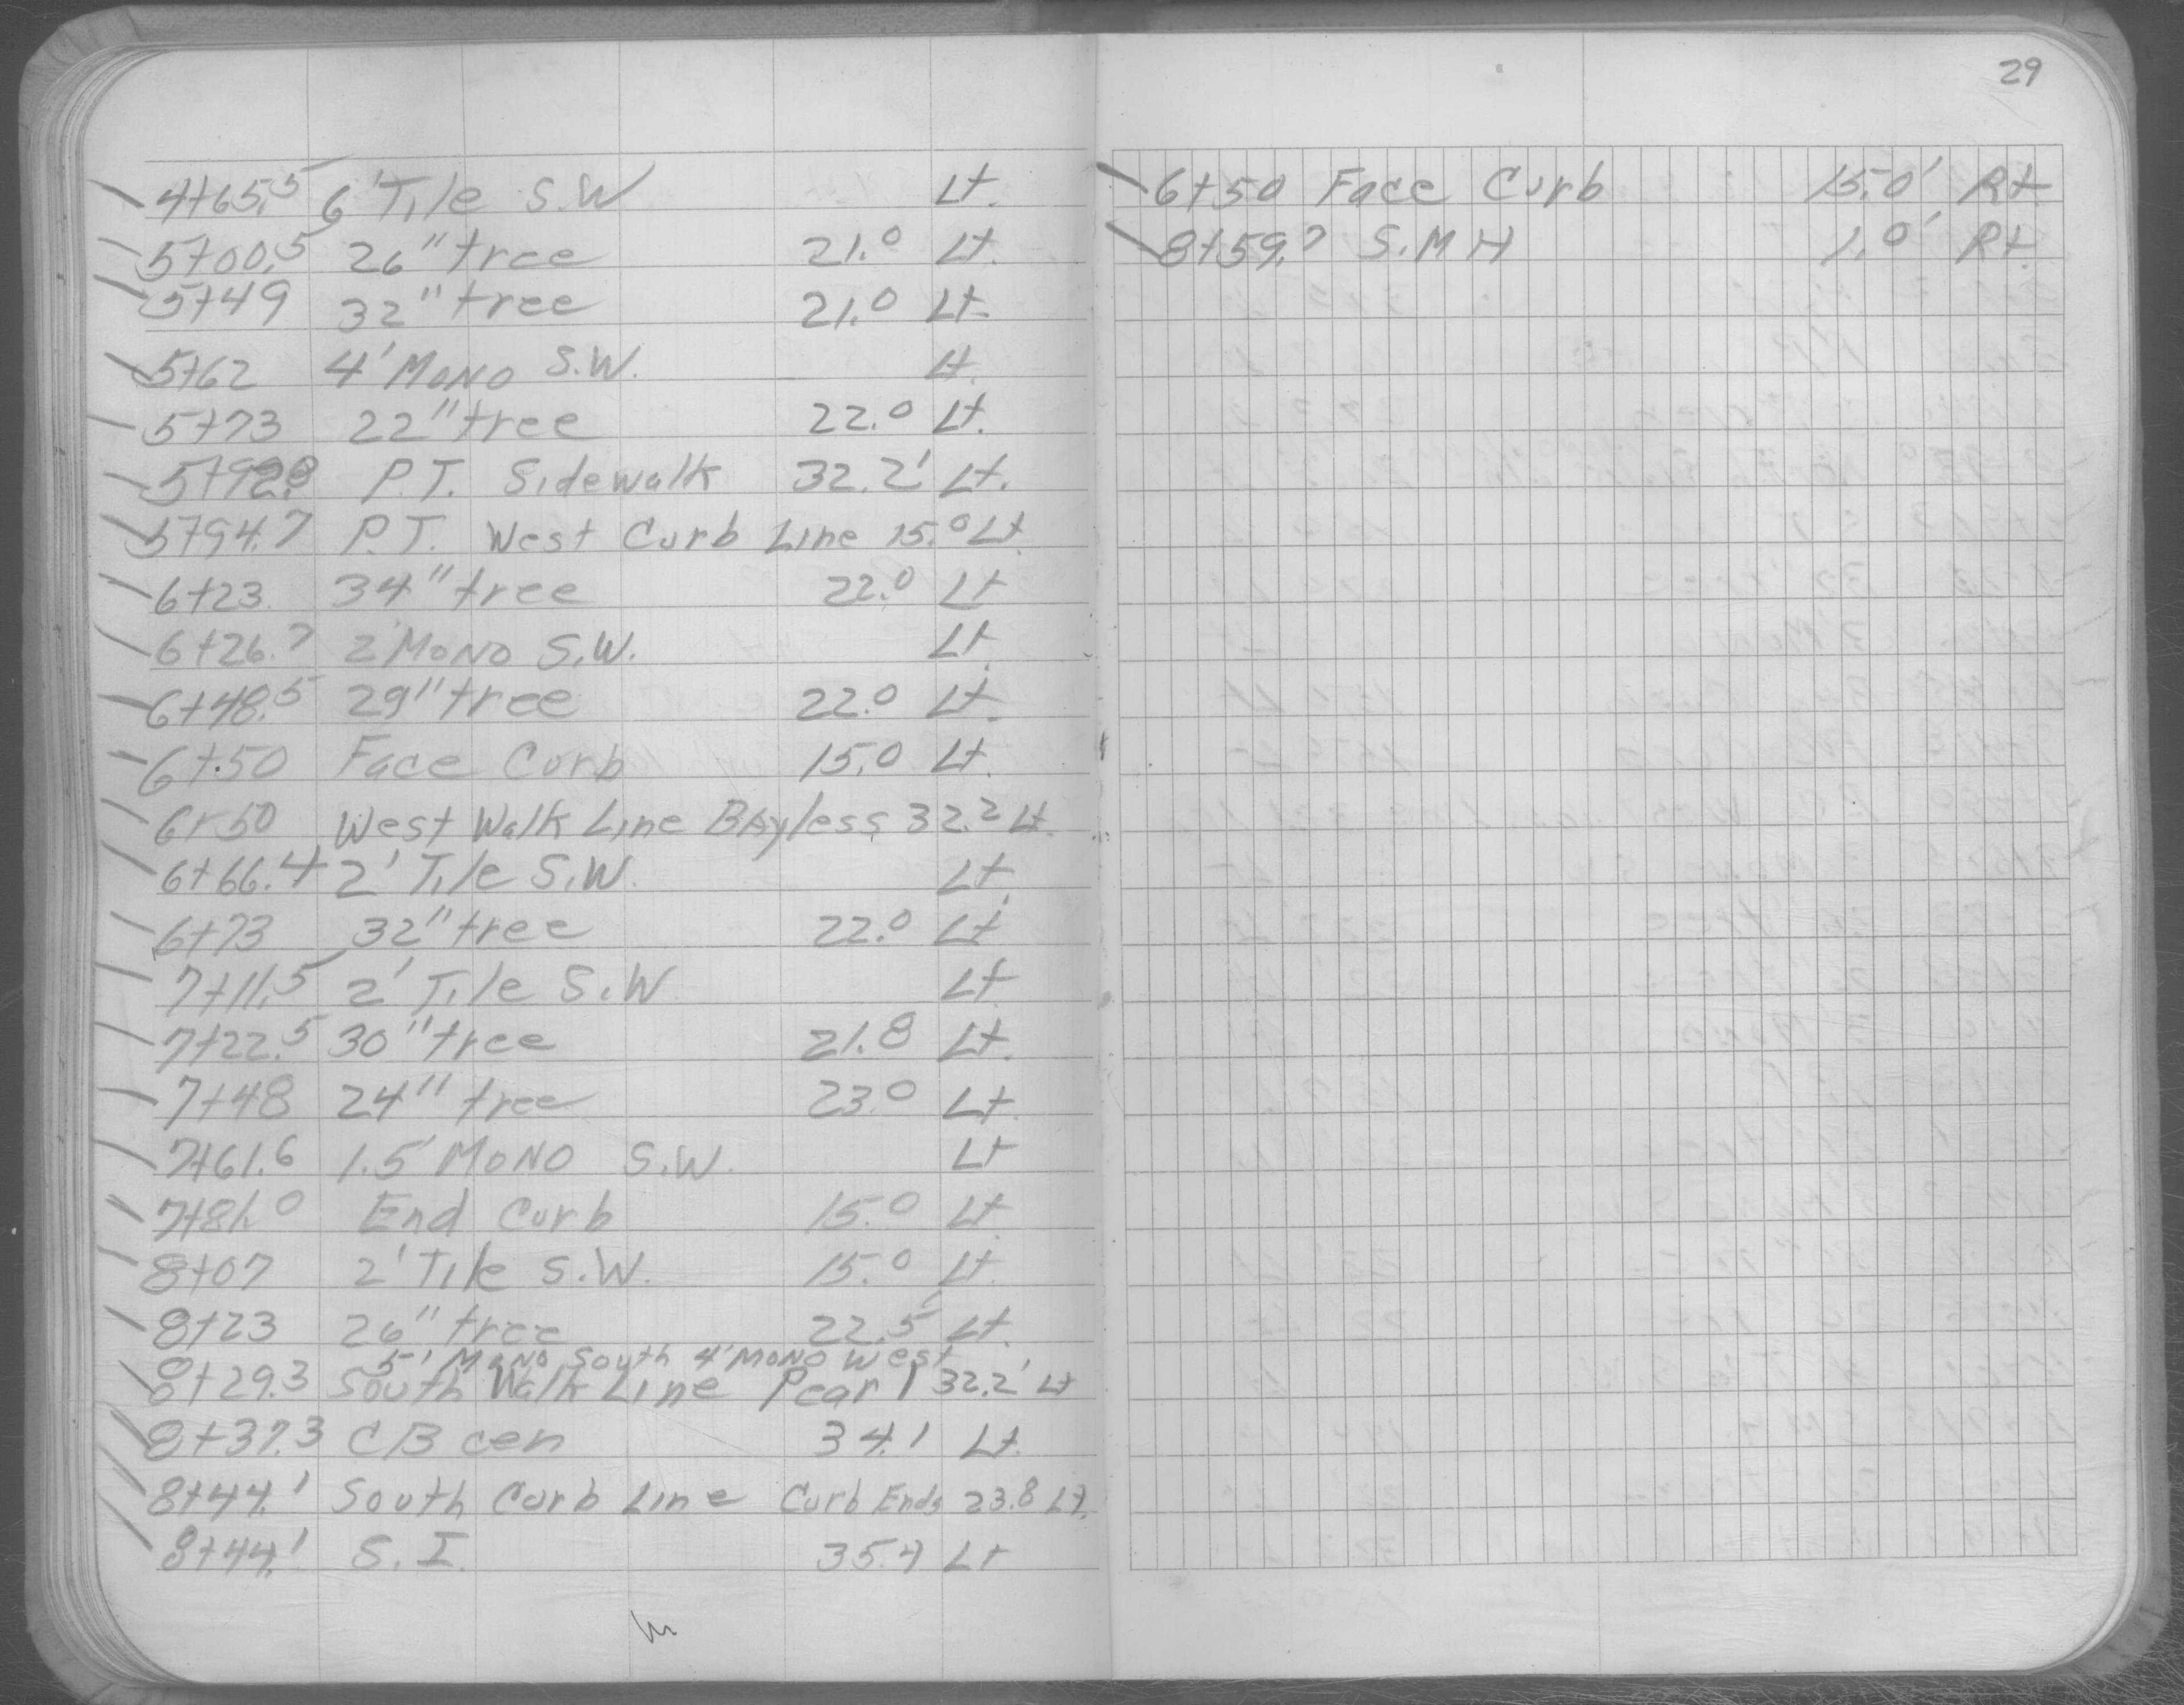 29
4+65.5 6' Tile S.W Lt.
5+00.5 26" tree 21.0 Lt.
5+49 32" tree 21.0 Lt.
5+62 4' MONO S.W. Lt.
5+73 22" tree 22.0 Lt.
P.T. Sidewalk 32.2' Lt.
5+94.7 P.T. West Curb Line 15.0 Lt.
6+23 34" tree 22.0 Lt
6+26.7 2' MONO S.W. Lt.
6+48.5 29" tree 22.0 Lt.
6+50 Face Curb 15.0 Lt.
6+50 West Walk Line Bayless 32.2 Lt.
6+66.4 2' Tile S.W. Lt.
6+73 32" tree 22.0 Lt
7+11.5 2' Tile S.W Lt
7+22.5 30" tree 21.8 Lt.
7+48 24" tree 23.0 Lt.
7+61.6 1.5' MONO S.W. Lt
7+81.0 End Curb 15.0 Lt
8+07 2' Tile S.W. 15.0 Lt.
8+23 26" tree 22.5 Lt.
5' MONO South 4' MONO West
8+29.3 South Walk Line Pearl 32.2' Lt
8+37.3 CB cen 34.1 Lt.
8+44.1 South Curb Line Curb Ends 23.8 Lt.
8+44.1 S.I. 35.4 Lt
6+50 Face Curb 15.0' Rt
8+59.7 S.M H 1.0' Rt.